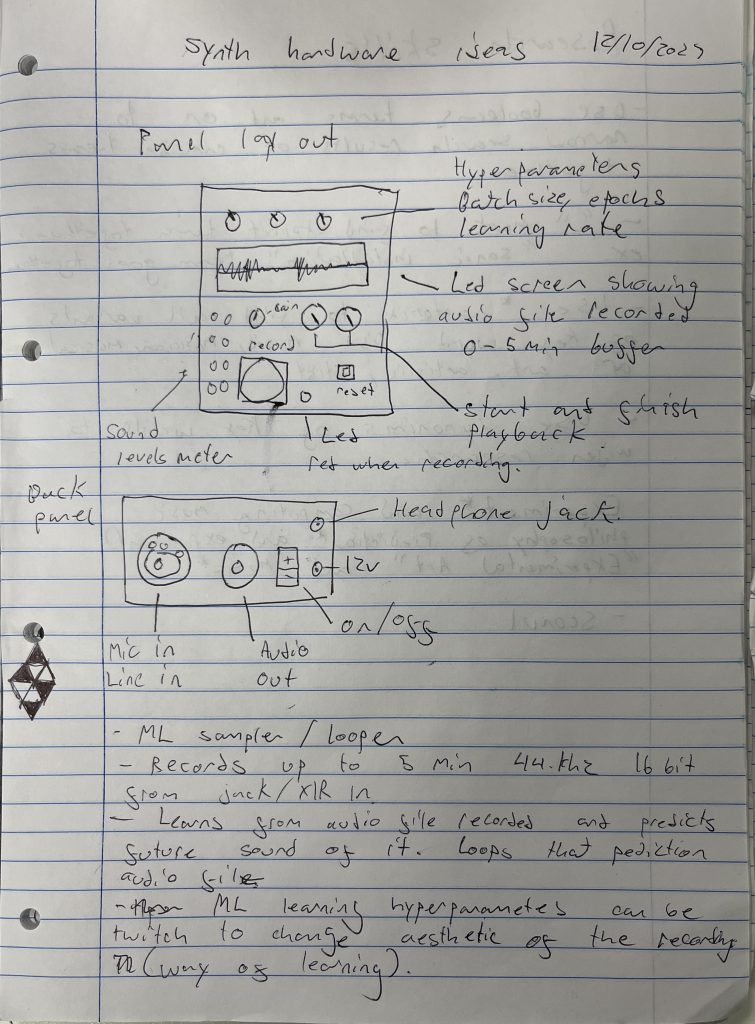 Synth hardware ideas 12/10/2023
Panel lay out
Hyperparameters
Batch size, epochs
learning rate
Led screen showing
audio file recorded
0-5 Min buffer
Gain
record
reset
start and finish
playback
Sound
levels meter
Led
ret when recording.
Back
panel
Headphone jack.
+
-
12v
on/off
Mic in
Line in
Audio
out
- ML sampler / looper
- Records up to 5 min 44.khz 16 bit
from jack/XlR in
- Learns from audio file recorded and predicts
future sound of it. Loops that pediction
audio file
- ML learning hyperparametes can be
twitch to change aesthetic of the recording
(way of learning).